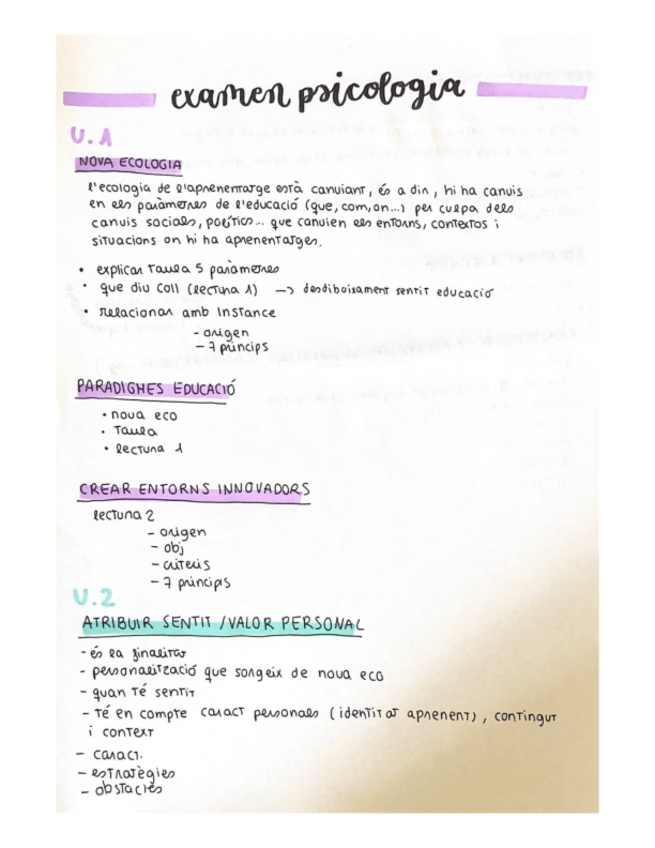 examen psicologia
U.1
NOVA ECOLOGIA
l'ecologia de l'aprenentatge està canviant, és a dir, hi ha canvis
en els paràmetres de l'educació (que, com, on...) per culpa dels
canvis socials, polítics... que canvien els entorns, contextos i
situacions on hi ha aprenentatges.
• explicar taula 5 paràmetres
• que diu Coll (lectura 1) → desdiboixament sentit educació
• relacionar amb Instance
- origen
- 7 princips
PARADIGMES EDUCACIÓ
• nova eco
• taula
• lectura 1
CREAR ENTORNS INNOVADORS
lectura 2
- origen
- obj
- criteris
- 7 principis
U.2
ATRIBUIR SENTIT /VALOR PERSONAL
- és la finalitat
- personalització que sorgeix de nova eco
- quan té sentit
- té en compte caract personals (identitat aprenent), contingut
i context
- caract.
- estratègies
- obstacles